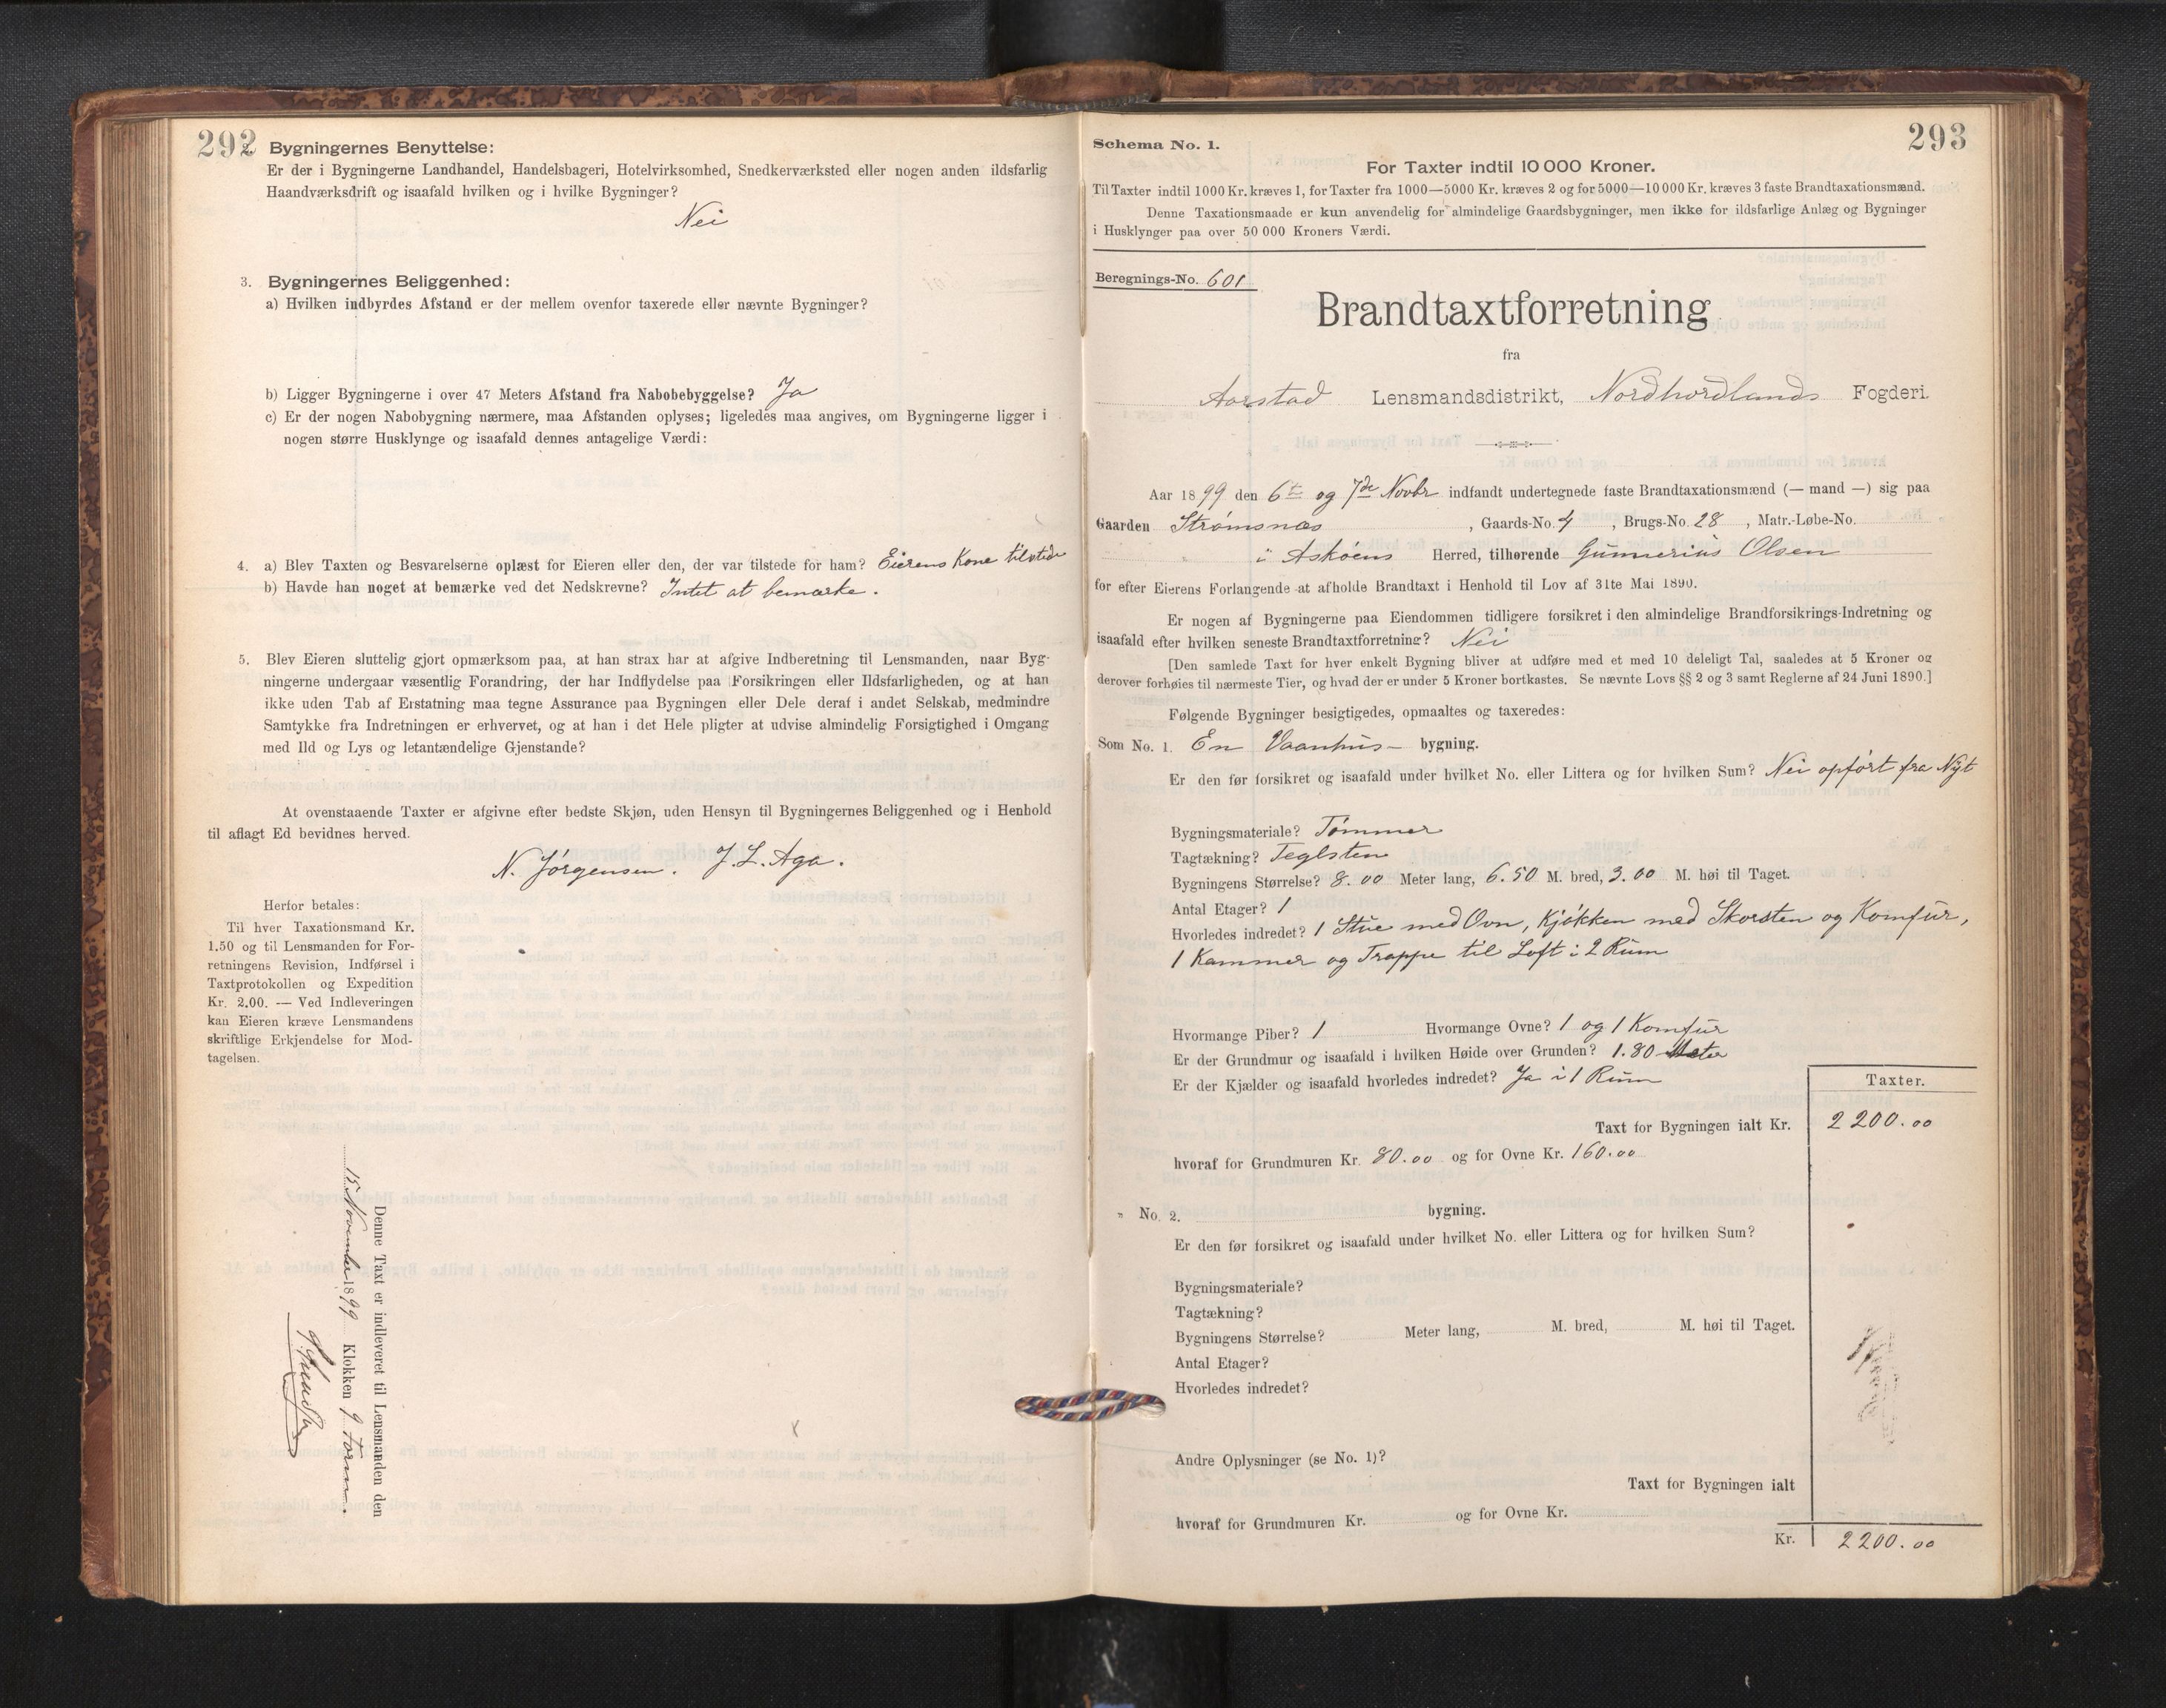 292
Bygningernes Benyttelse:
Er der i Bygningerne Landhandel, Handelsbageri, Hotelvirksomhed, Snedkerværksted eller nogen anden ildsfarlig
Haandværksdrift og isaafald hvilken og i hvilke Bygninger?
Nei
3. Bygningernes Beliggenhed:
a) Hvilken indbyrdes Afstand er der mellem ovenfor taxerede eller nævnte Bygninger?
b) Ligger Bygningerne i over 47 Meters Afstand fra Nabobebyggelse? Ja
c) Er der nogen Nabobygning nærmere, maa Afstanden oplyses; ligeledes maa angives, om Bygningerne ligger i
nogen større Husklynge og isaafald dennes antagelige Værdi:
4. a) Blev Taxten og Besvarelserne oplæst for Eieren eller den, der var tilstede for ham? Eierens Kone tilstede
b) Havde han noget at bemærke ved det Nedskrevne? Intet at bemærke.
5. Blev Eieren sluttelig gjort opmærksom paa, at han strax har at afgive Indberetning til Lensmanden, naar Byg-
ningerne undergaar væsentlig Forandring, der har Indflydelse paa Forsikringen eller Ildsfarligheden, og at han
ikke uden Tab af Erstatning maa tegne Assurance paa Bygningen eller Dele deraf i andet Selskab, medmindre
Samtykke fra Indretningen er erhvervet, og at han i det Hele pligter at udvise almindelig Forsigtighed i Omgang
med Ild og Lys og letantændelige Gjenstande?
At ovenstaaende Taxter er afgivne efter bedste Skjøn, uden Hensyn til Bygningernes Beliggenhed og i Henhold
til aflagt Ed bevidnes herved.
N. Jørgensen. J. L. Aga.
Herfor betales:
Til hver Taxationsmand Kr.
1.50 og til Lensmanden for For-
retningens Revision, Indførsel i
Taxtprotokollen og Expedition
Kr. 2.00. — Ved Indleveringen
kan Eieren kræve Lensmandens
skriftlige Erkjendelse for Mod-
tagelsen.
Denne Taxt er indleveret til Lensmanden den
15 November 1899 Klokken 9 Form.
293
Schema No. 1.
For Taxter indtil 10 000 Kroner.
Til Taxter indtil 1000 Kr. kræves 1, for Taxter fra 1000—5000 Kr. kræves 2 og for 5000—10 000 Kr. kræves 3 faste Brandtaxationsmænd.
Denne Taxationsmaade er kun anvendelig for almindelige Gaardsbygninger, men ikke for ildsfarlige Anlæg og Bygninger
i Husklynger paa over 50 000 Kroners Værdi.
Beregnings-No. 601
Brandtaxtforretning
fra
Aarstad Lensmandsdistrikt, Nordhordlands Fogderi.
Aar 1899 den 6te og 7de Novbr indfandt undertegnede faste Brandtaxationsmænd (— mand —) sig paa
Gaarden Strømsnæs, Gaards-No. 4, Brugs-No. 28, Matr.-Løbe-No.
i Askøens Herred, tilhørende Gunnerius Olsen
for efter Eierens Forlangende at afholde Brandtaxt i Henhold til Lov af 31te Mai 1890.
Er nogen af Bygningerne paa Eiendommen tidligere forsikret i den almindelige Brandforsikrings-Indretning og
isaafald efter hvilken seneste Brandtaxtforretning? Nei
[Den samlede Taxt for hver enkelt Bygning bliver at udføre med et med 10 deleligt Tal, saaledes at 5 Kroner og
derover forhøies til nærmeste Tier, og hvad der er under 5 Kroner bortkastes. Se nævnte Lovs §§ 2 og 3 samt Reglerne af 24 Juni 1890.]
Følgende Bygninger besigtigedes, opmaaltes og taxeredes:
Som No. 1. En Vaanhus- bygning.
Er den før forsikret og isaafald under hvilket No. eller Littera og for hvilken Sum? Nei opført fra Nyt
Bygningsmateriale? Tømmer
Tagtækning? Teglsten
Bygningens Størrelse? 8.00 Meter lang, 6.50 M. bred, 3.00 M. høi til Taget.
Antal Etager? 1
Hvorledes indredet? 1 Stue med Ovn, Kjøkken med Skorsten og Komfur,
1 Kammer og Trappe til Loft i 2 Rum
Hvormange Piber? 1 Hvormange Ovne? 1 og 1 Komfur
Er der Grundmur og isaafald i hvilken Høide over Grunden? 1.80 Meter
Er der Kjælder og isaafald hvorledes indredet? Ja i 1 Rum
Taxter.
Taxt for Bygningen ialt Kr. 2200.00
hvoraf for Grundmuren Kr. 80.00 og for Ovne Kr. 160.00
" No. 2. bygning.
Er den før forsikret og isaafald under hvilket No. eller Littera og for hvilken Sum?
Bygningsmateriale?
Tagtækning?
Bygningens Størrelse? Meter lang, M. bred, M. høi til Taget.
Antal Etager?
Hvorledes indredet?
Andre Oplysninger (se No. 1)?
Taxt for Bygningen ialt
hvoraf for Grundmuren Kr. og for Ovne Kr.
Kr. 2200.00